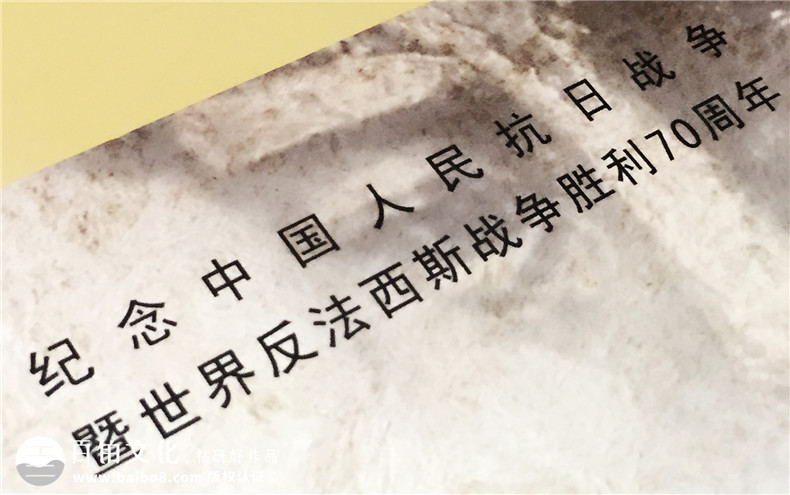 纪念中国人民抗日战争
暨世界反法西斯战争胜利70周年
百铂文化
www.baibo8.com